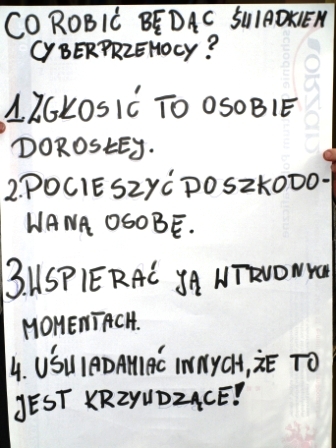 CO ROBIĆ BĘDĄC ŚWIADKIEM
CYBERPRZEMOCY?
1. ZGŁOSIĆ TO OSOBIE
DOROSŁEJ.
2. POCIESZYĆ POSZKODO-
WANĄ OSOBĘ.
3. WSPIERAĆ JĄ W TRUDNYCH
MOMENTACH.
4. UŚWIADAMIAĆ INNYCH, ŻE TO
JEST KRZYWDZĄCE!